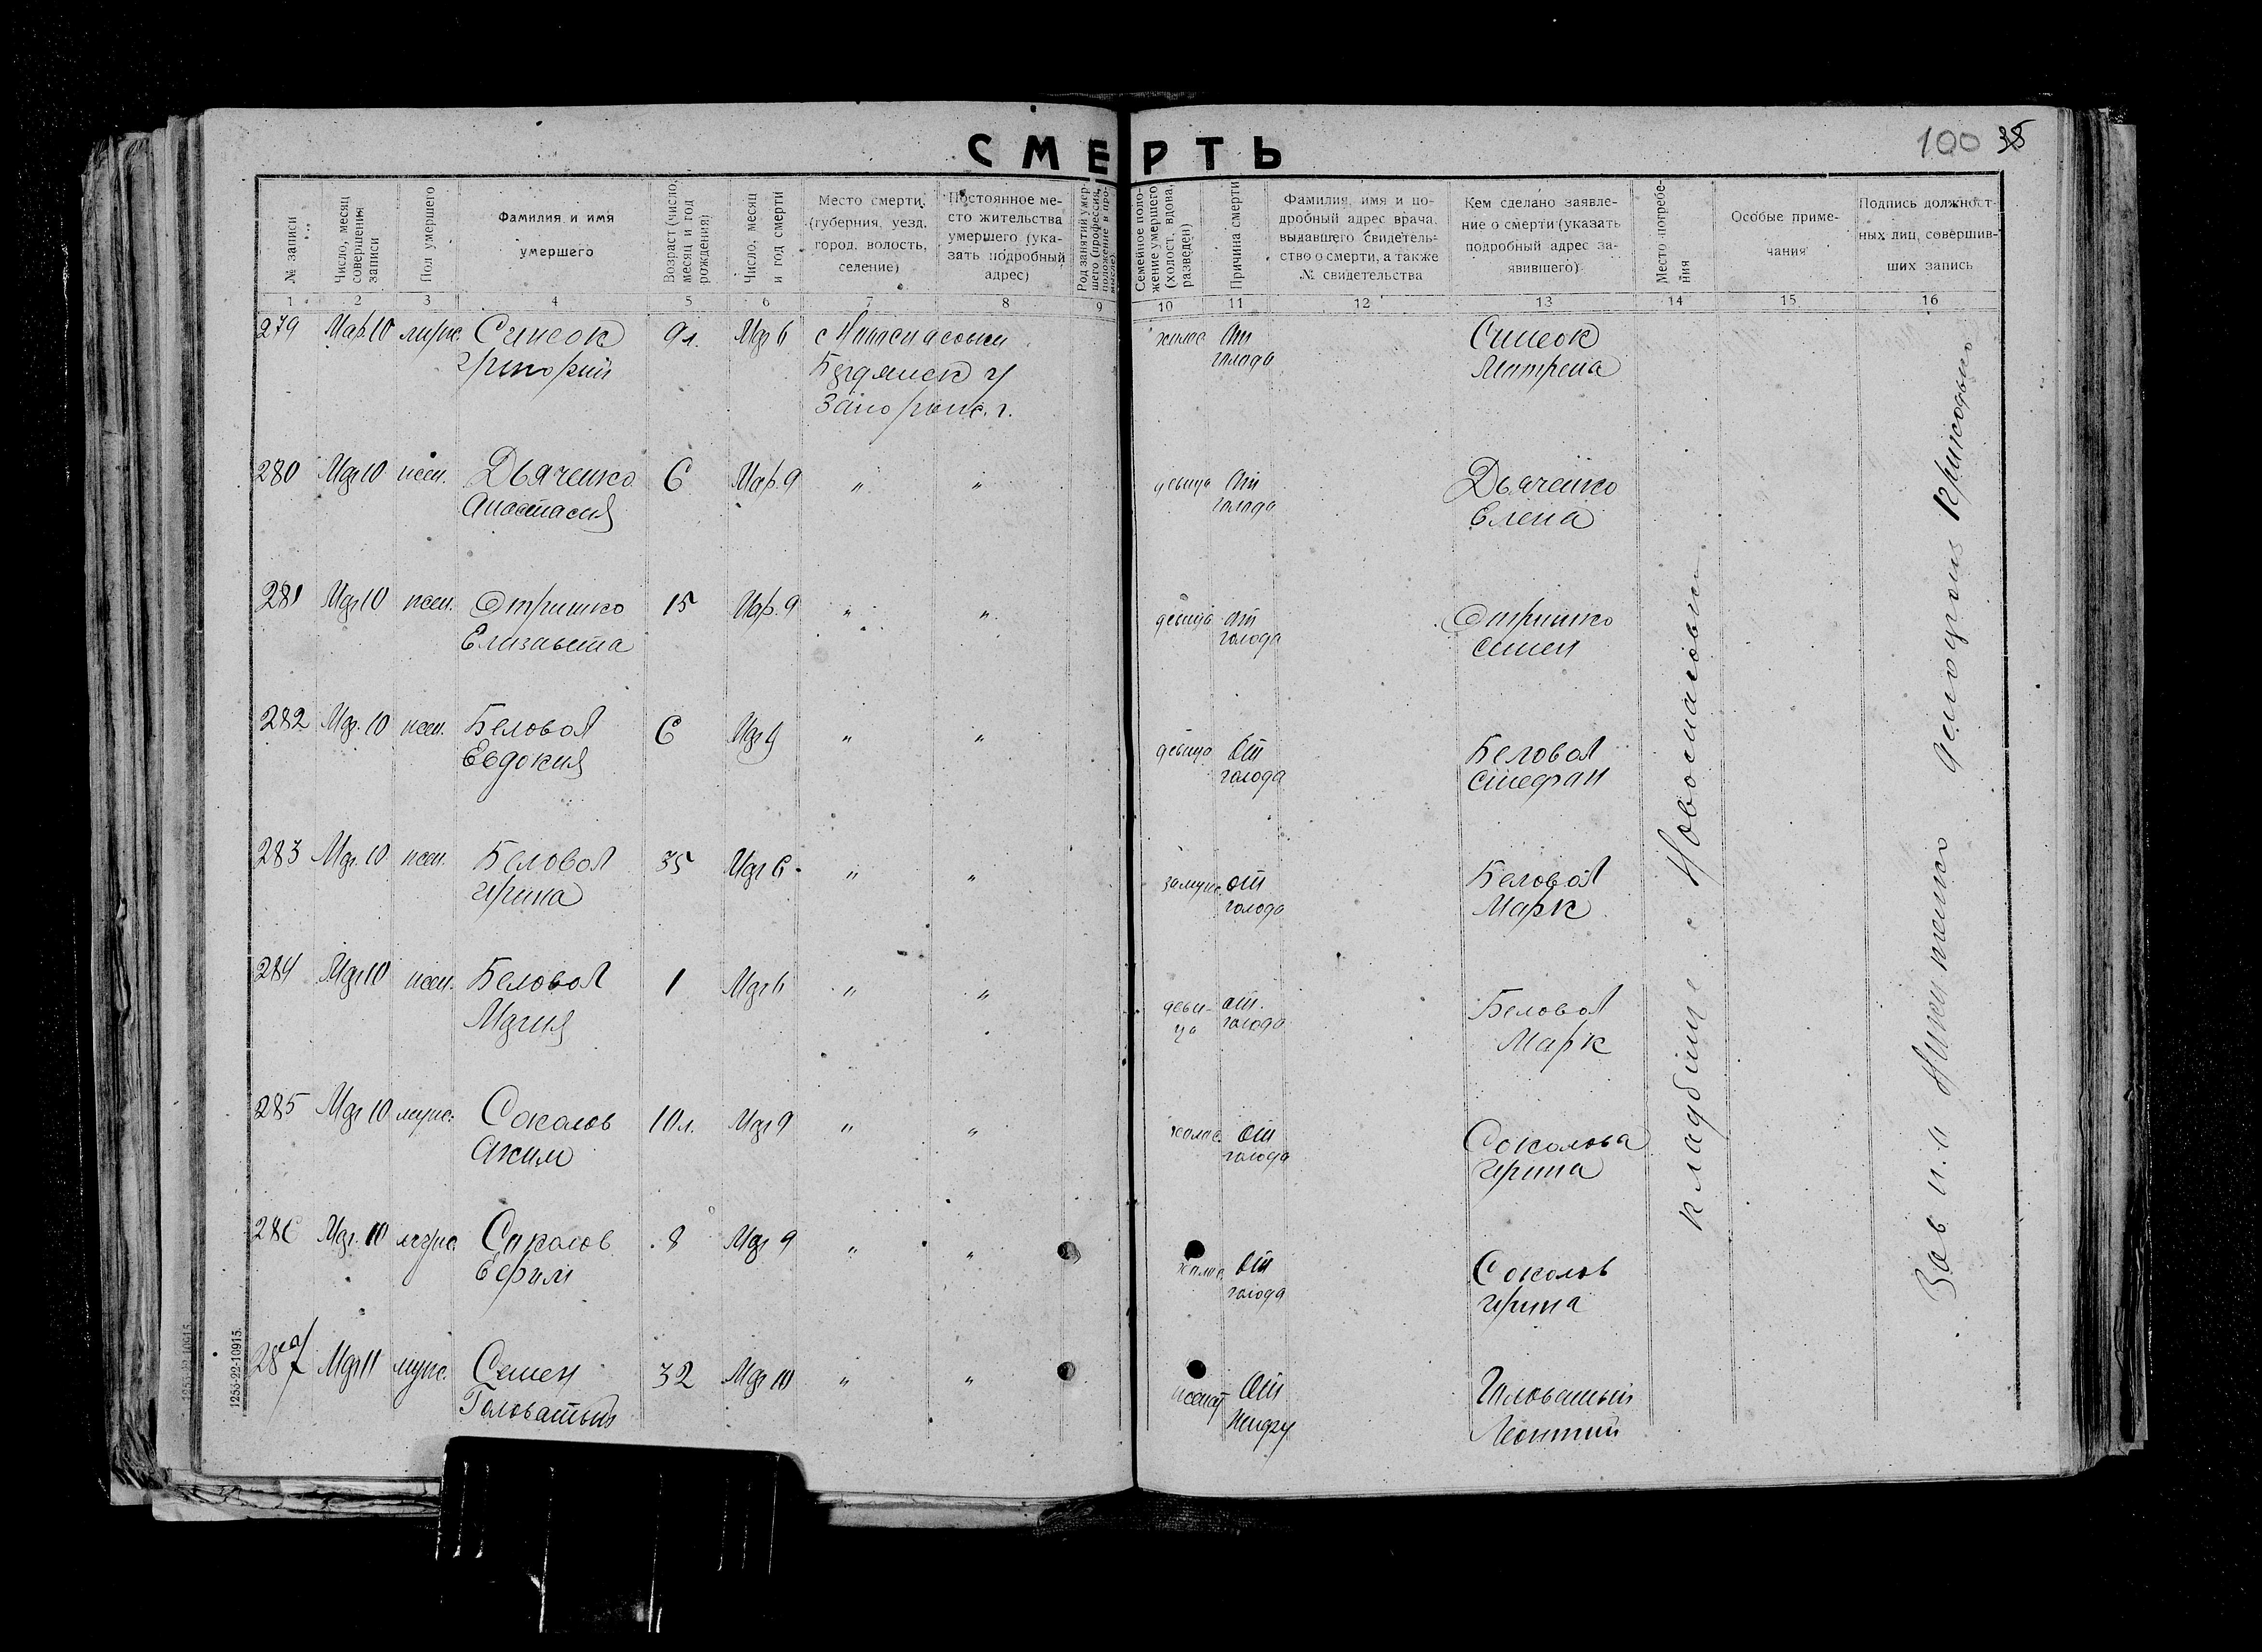 СМЕРТЬ
100 35
№ записи
Число, месяц совершения записи
Пол умершего
Фамилия и имя умершего
Возраст (число, месяц и год рождения)
Число, месяц и год смерти
Место смерти, (губерния, уезд, город, волость, селение)
Постоянное место жительства умершего (указать подробный адрес)
Род занятий умершего (профессия, положение в промысле)
Семейное положение умершего (холост, вдова, разведен)
Причина смерти
Фамилия, имя и подробный адрес врача, выдавшего свидетельство о смерти, а также № свидетельства
Кем сделано заявление о смерти (указать подробный адрес заявившего)
Место погребения
Особые примечания
Подпись должностных лиц, совершивших запись
1 2 3 4 5 6 7 8 9 10 11 12 13 14 15 16
279 Мар 10 муж. Синеок 9 л. Мар 6 с. холос От Синеок
Григорий Бердянск у голода Матрена
Запорож. г.
280 Мар 10 жен. Дьяченко 6 Мар. 9 " " девица От Дьяченко
Анастасия голода Елена
281 Мар 10 жен. 15 Мар. 9 " " девица От
Елизавета голода Семен
282 Мар. 10 жен. Беловол 6 Мар 9 " " девица От Беловол
Евдокия голода Стефан
283 Мар. 10 жен. Беловол 35 Мар 6 " " замуж. от Беловол
Ирина голода Марк
284 Мар 10 жен. Беловол 1 Мар 6 " " деви- от. Беловол
Мария ца голода Марк
285 Мар 10 муж. Соколов 10 л. Мар 9 " " холос От Соколова
Аким голода Ирина
286 Мар. 10 муж. Соколов 8 Мар 9 " " холос От Соколов
Ефим голода Ирина
287 Мар 11 муж. Семен 32 Мар 10 " " женат От Головатый
Головатый Леонтий
кладбище с. Новоспасовки
Зав п.о
1253-22-10915.